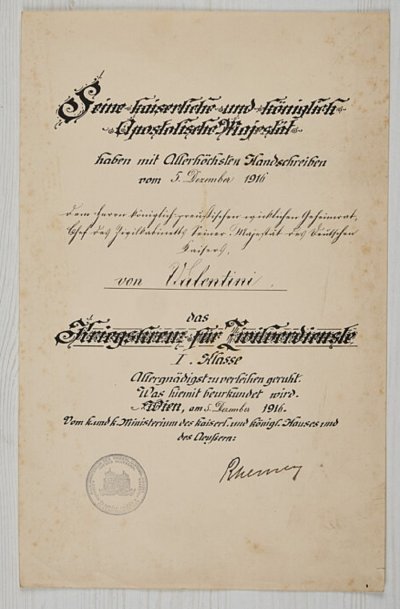 Seine kaiserliche und königlich
Apostolische Majestät
haben mit Allerhöchsten Handschreiben
vom 5. Dezember 1916
dem Herrn königlich preußischen wirklichen Geheimrat,
Chef des Zivilkabinetts Seiner Majestät des Deutschen
Kaisers,
von Valentini.
das
Kriegskreuz für Zivilverdienste
I. Klasse
Allergnädigst zu verleihen geruht.
Was hiemit beurkundet wird.
Wien, am 5. Dezember 1916.
Vom k. und k. Ministerium des kaiserl. und königl. Hauses und
des Aeußern: